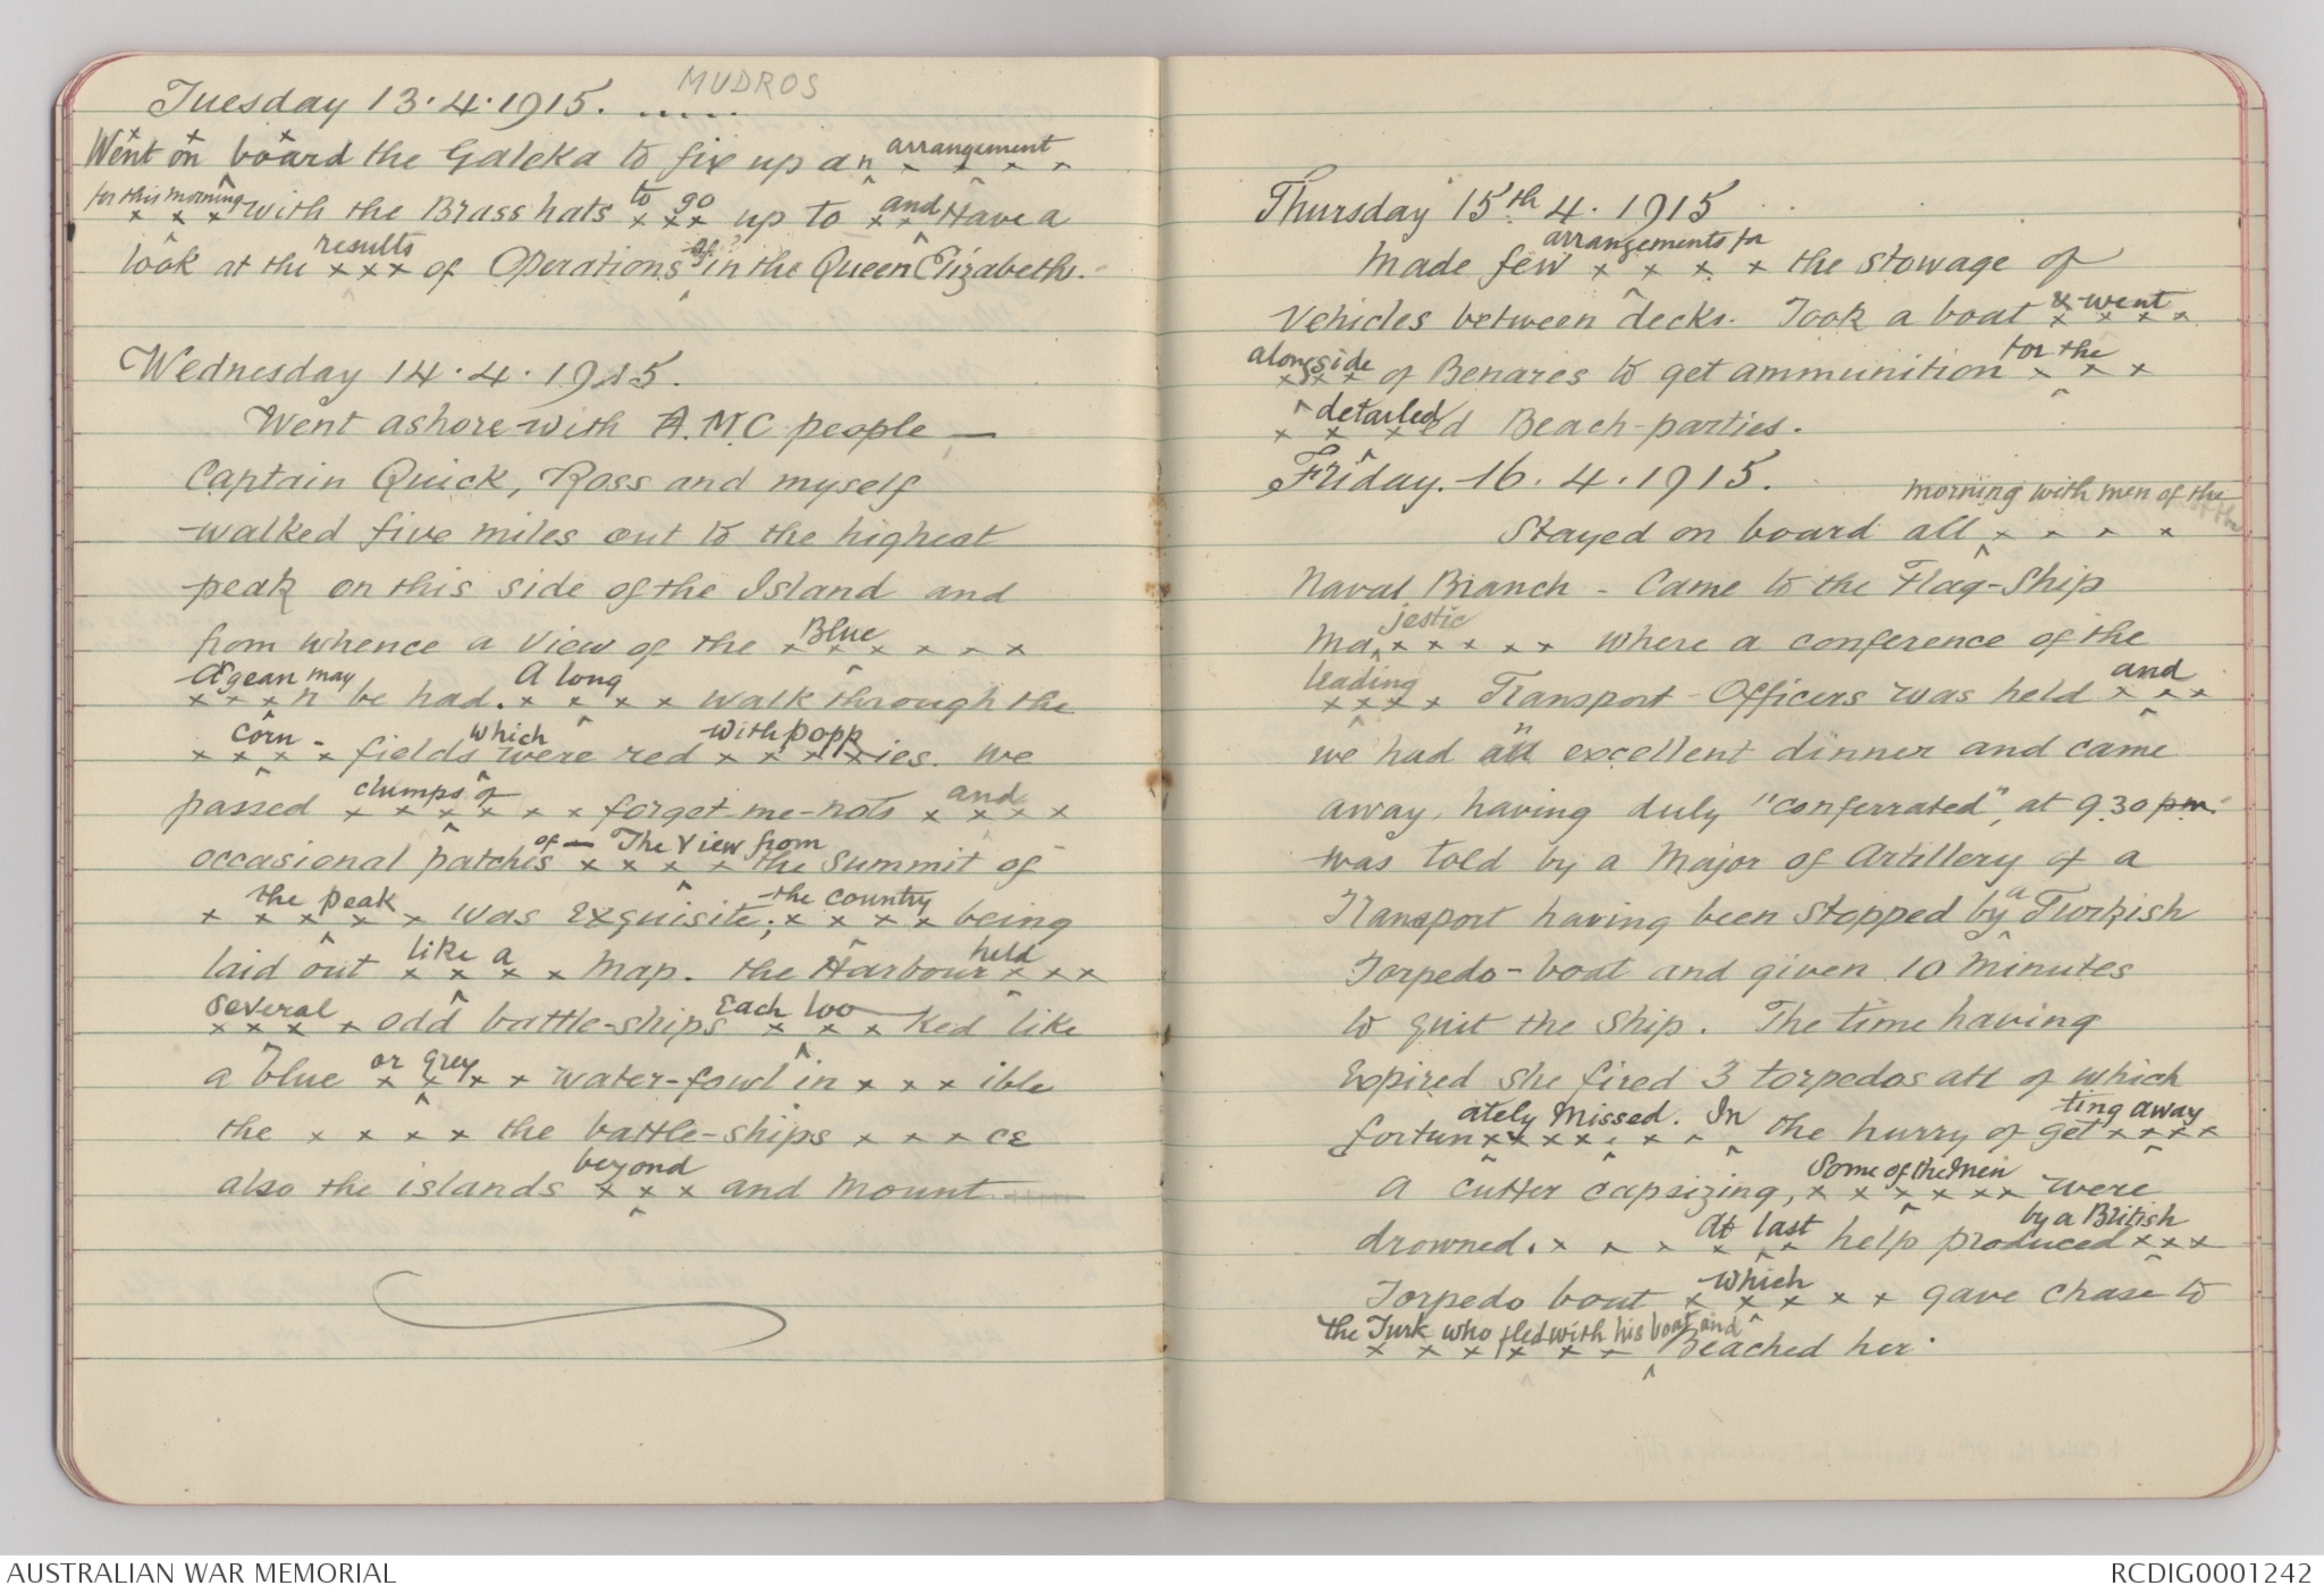 MUDROS
Tuesday 13.4.1915. .....
Went on board the Galeka to fix up an arrangement x x x x
for this morning x x x with the Brass hats to go x x x up to x x and Have a
look at the results x x x of Operations in the Queen Elizabeth.
Wednesday 14.4.1915.
Went ashore with A.M.C people —
Captain Quick, Ross and myself
walked five miles out to the highest
peak on this side of the Island and
from whence a view of the Blue x x x x x x
Ægean may x x x n be had. A long x x x x walk through the
corn - x x x x fields which were red with popp x x x x x ies. We
passed clumps of x x x x x x forget-me-nots and x x x x
occasional patches of — The View from x x x x the Summit of
the peak x x x x x was Exquisite; the country x x x x being
laid out like a x x x x map. the Harbour held x x x
several x x x x odd battle-ships Each loo x x x ked like
a blue or grey x x x x water-fowl in x x x ible
the x x x x the battle-ships x x x ce
also the islands beyond x x x and Mount
Thursday 15th 4. 1915
Made few arrangements for x x x x the stowage of
Vehicles between decks. Took a boat & went x x x x
alongside x x x x of Benares to get ammunition for the x x x
detailed x x x d Beach-parties.
Friday. 16.4.1915.
morning with men of the
Stayed on board all x x x x
Naval Branch - Came to the Flag-Ship
Ma jestic x x x x x where a conference of the
leading x x x x Transport-Officers was held and x x x
we had an excellent dinner and came
away, having duly "conferrated", at 9.30 pm.
was told by a Major of Artillery of a
Transport having been stopped by a Turkish
Torpedo-boat and given 10 minutes
to quit the ship. The time having
Expired she fired 3 torpedos all of which
fortun ately Missed. In x x x x x x x the hurry of get ting away x x x x
a cutter capsizing, Some of the men x x x x x x were
drowned. x x x At last x x x help produced by a British x x x
Torpedo boat which x x x x x gave chase to
the Turk who fled with his boat and x x x x x x Beached her.
AUSTRALIAN WAR MEMORIAL
RCDIG0001242